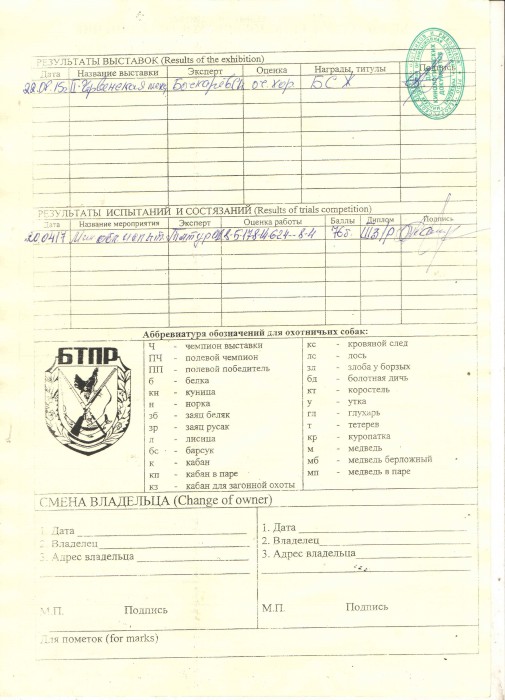 РЕЗУЛЬТАТЫ ВЫСТАВОК (Results of the exhibition)
Дата Название выставки Эксперт Оценка Награды, титулы Подпись
оч. хор БСЖ
РЕЗУЛЬТАТЫ ИСПЫТАНИЙ И СОСТЯЗАНИЙ (Results of trials competition)
Дата Название мероприятия Эксперт Оценка работы Баллы Диплом Подпись
76б.
Аббревиатура обозначений для охотничьих собак:
БТПР
Ч - чемпион выставки
ПЧ - полевой чемпион
ПП - полевой победитель
б - белка
кн - куница
н - норка
зб - заяц беляк
зр - заяц русак
л - лисица
бс - барсук
к - кабан
кп - кабан в паре
кз - кабан для загонной охоты
кс - кровяной след
лс - лось
зл - злоба у борзых
бд - болотная дичь
кт - коростель
у - утка
гл - глухарь
т - тетерев
кр - куропатка
м - медведь
мб - медведь берложный
мп - медведь в паре
СМЕНА ВЛАДЕЛЬЦА (Change of owner)
1. Дата
2. Владелец
3. Адрес владельца
М.П. Подпись
1. Дата
2. Владелец
3. Адрес владельца
М.П. Подпись
Для пометок (for marks)